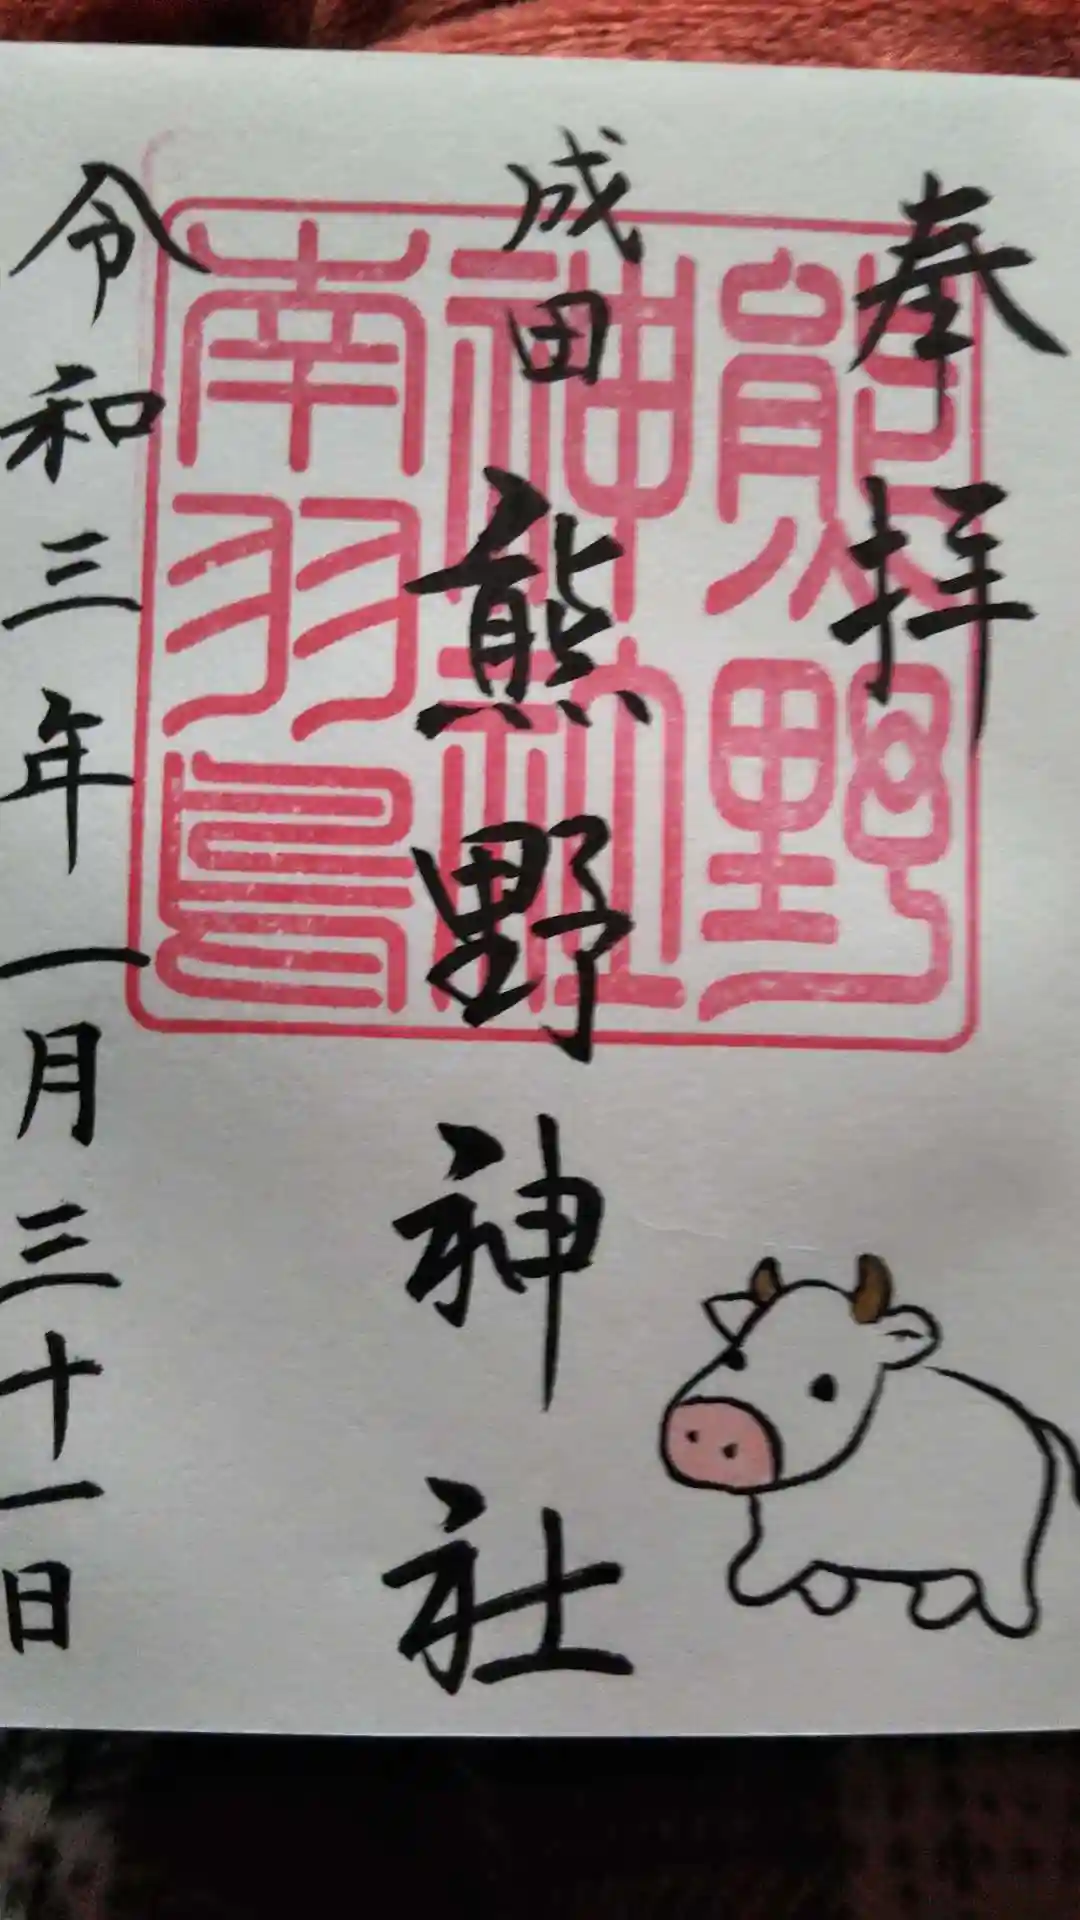 奉拝
成田熊野神社
令和三年一月三十一日
熊野
神社
南羽鳥